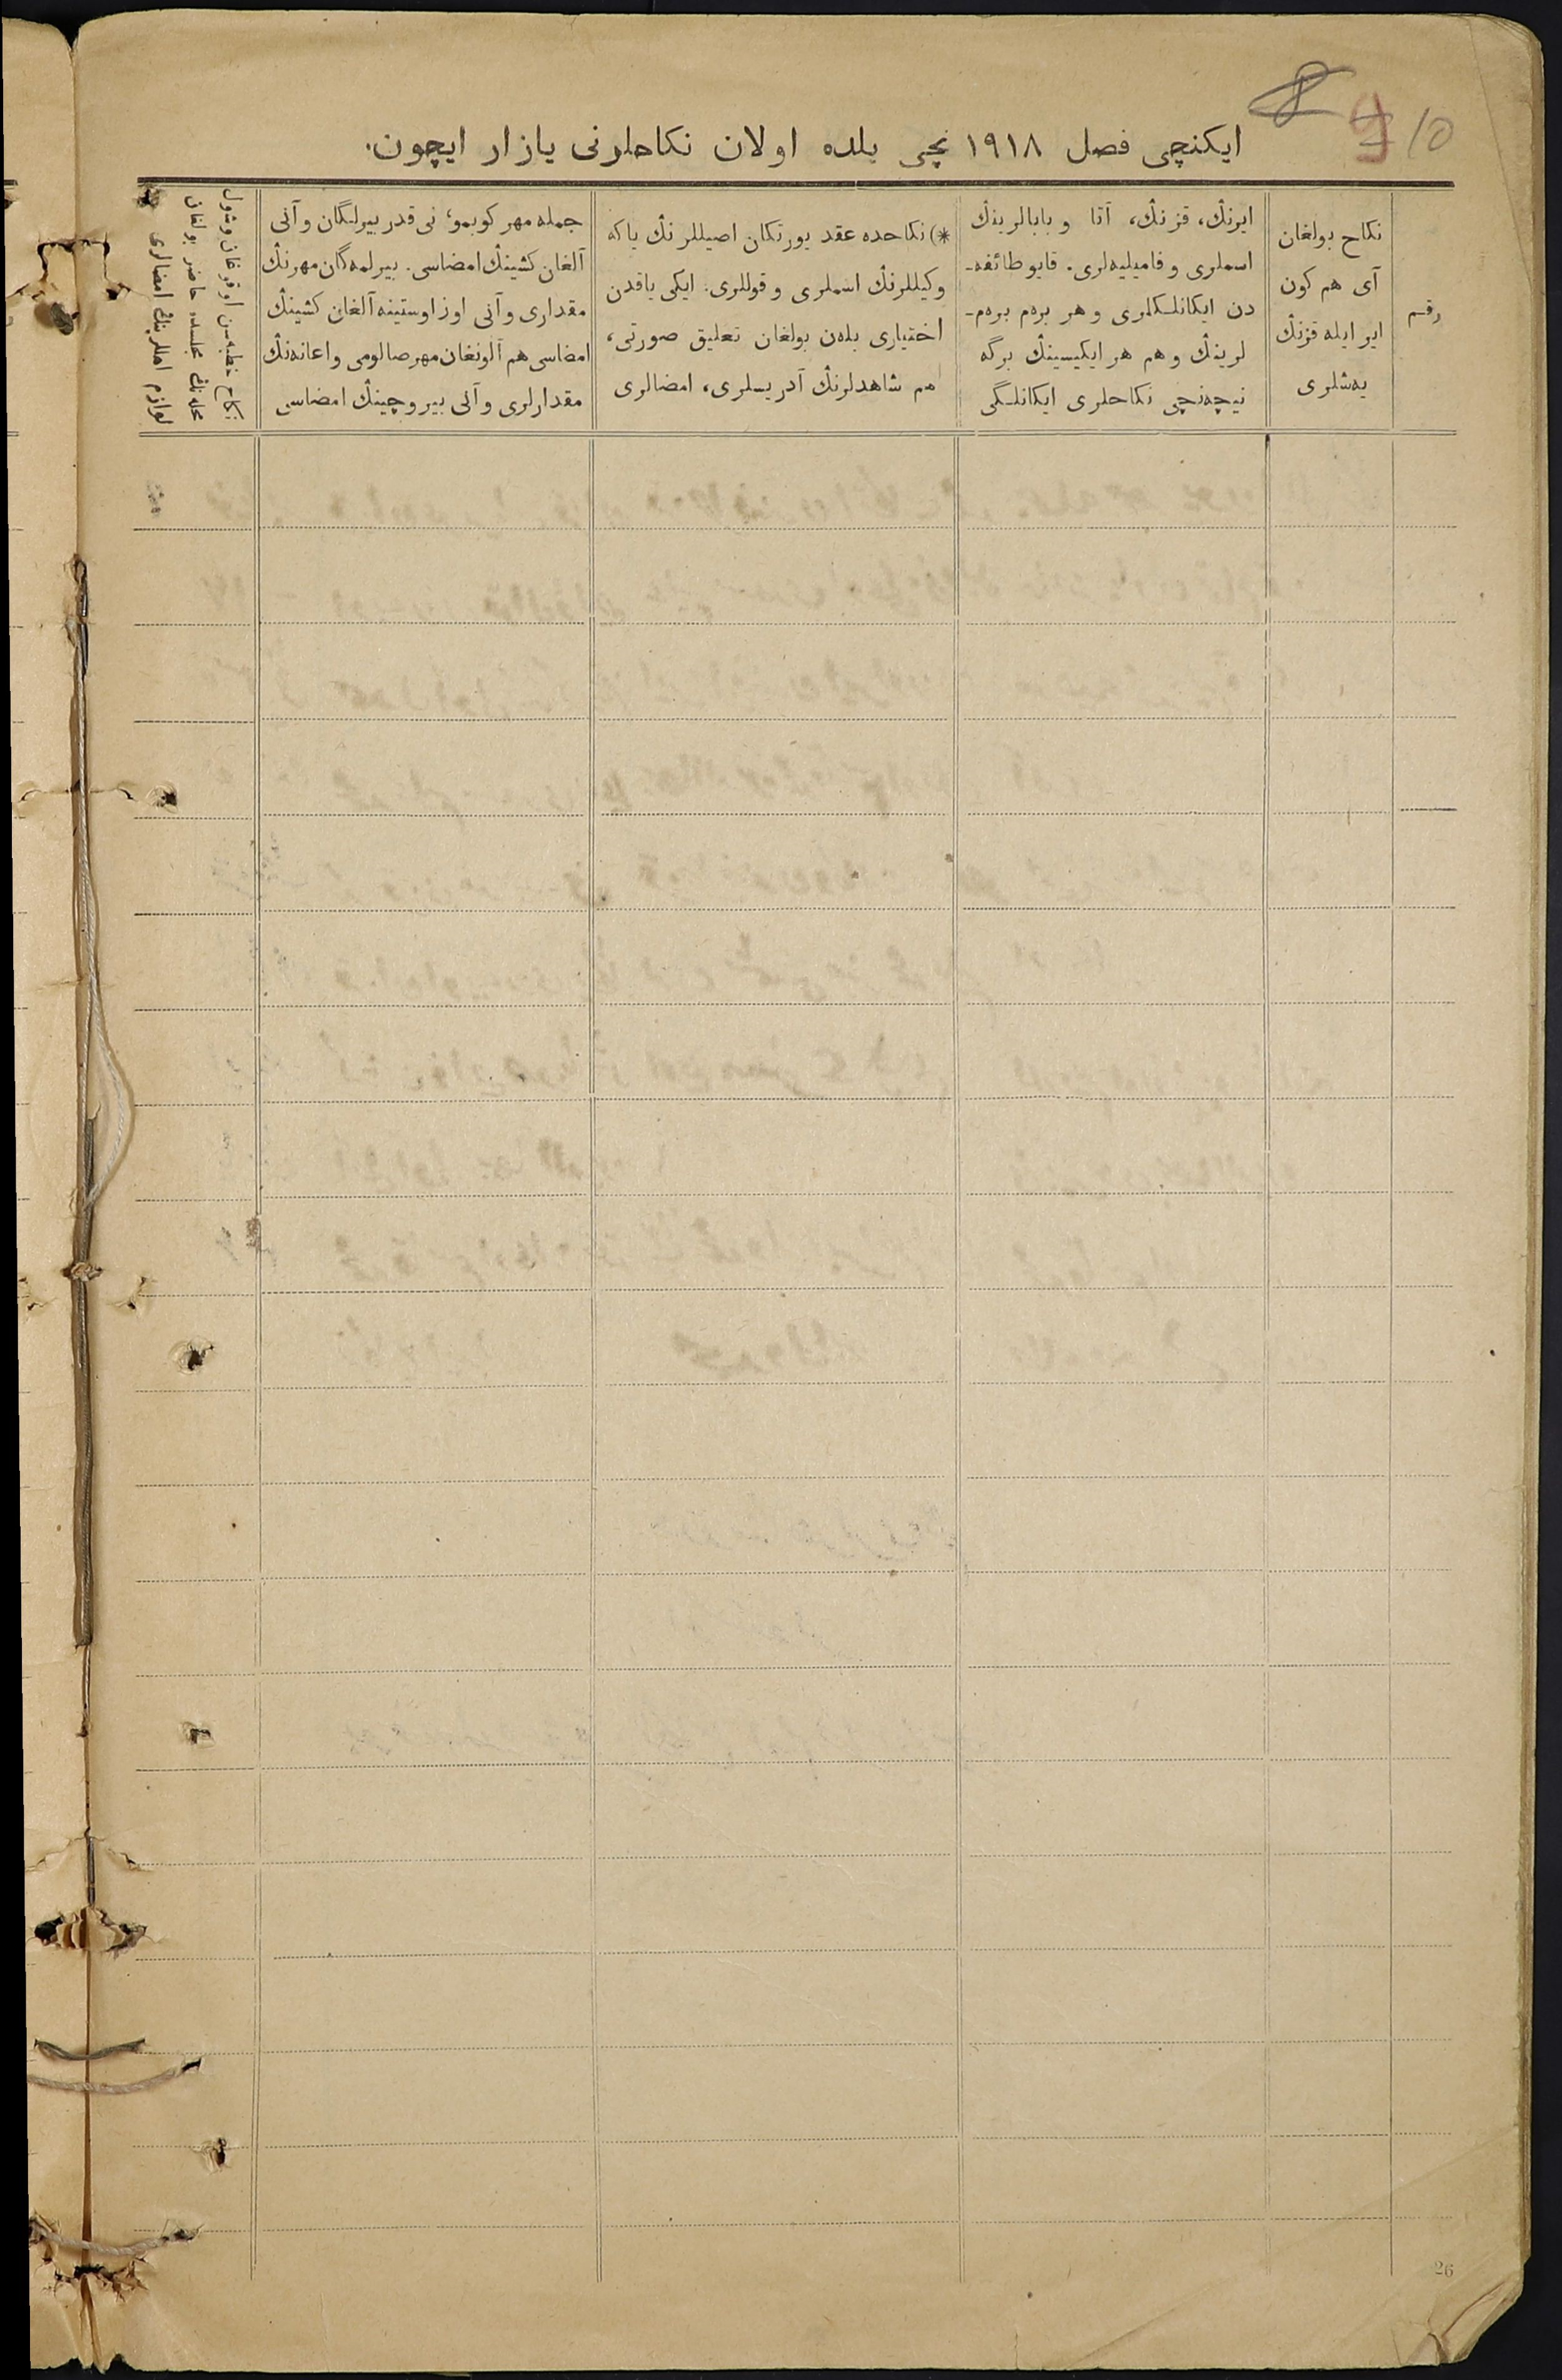 10
ایکنچی فصل ١٩١٨ نچی یلده اولان نکاحلرنی یازار ایچون.
رقم
نکاح بولغان
آی هم کون
ایر ایله قزنڭ
یه‌شلری
ایرنڭ، قزنڭ، آتا و بابالرینڭ
اسملری و فامیلیه‌لری. قایو طائفه‌ـ
دن ایکانلکلری و هر برەم برەم‌ـ
لرینڭ و هم هر ایکیسینڭ برگه
نیچه‌نچی نکاحلری ایکانلگی
*) نکاحده عقد یورتکان اصیللرنڭ یاکه
وکیللرنڭ اسملری و قوللری. ایکی یاقدن
اختیاری بله‌ن بولغان تعلیق صورتی،
هم شاهدلرنڭ آدریسلری، امضالری
جمله مهر کوبمو؛ نی قدر بیرلگان و آنی
آلغان کشینڭ امضاسی. بیرلمه‌گان مهرنڭ
مقداری و آنی اوز اوستینه آلغان کشینڭ
امضاسی هم آلونغان مهر صالومی و اعانه‌نڭ
مقدارلری و آنی بیروچینڭ امضاسی
نکاح خطبه‌سن اوقوغان و شول
محله‌نڭ مجلسده حاضر بولغان
لوازم اهللرینڭ امضالری
26